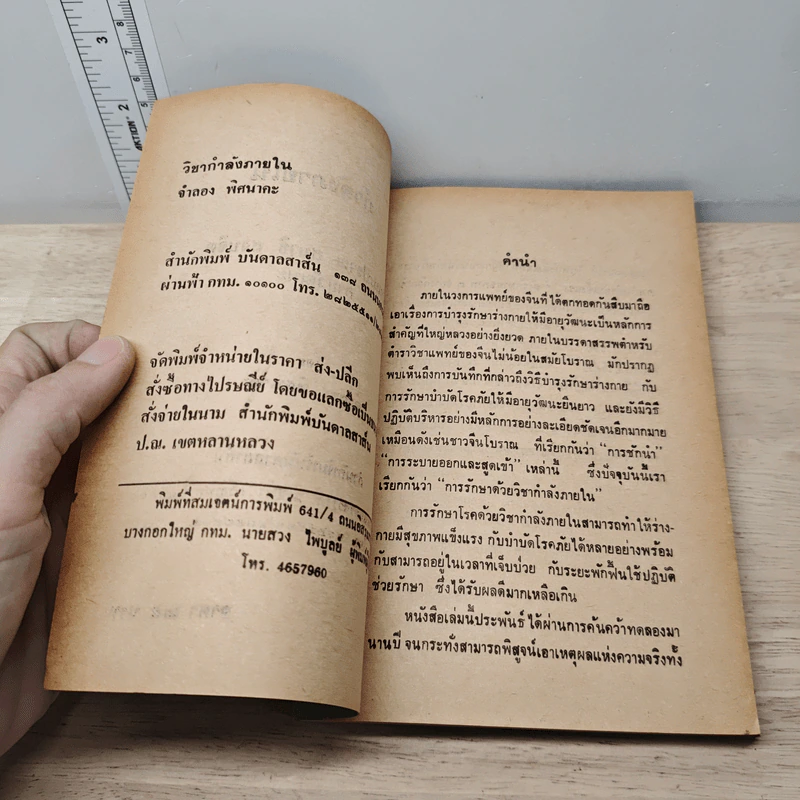 วิชากำลังภายใน
จำลอง พิศนาคะ
สำนักพิมพ์ บันดาลสาส์น ๑๓๙
ผ่านฟ้า กทม. ๑๐๑๐๐ โทร. ๒๘๒๕๕๑๑
จัดพิมพ์จำหน่ายในราคา ส่ง-ปลีก
สั่งซื้อทางไปรษณีย์ โดยขอแลกซื้อเป็น
สั่งจ่ายในนาม สำนักพิมพ์บันดาลสาส์น
ป.ณ. เขตหลานหลวง
พิมพ์ที่สมเจตน์การพิมพ์ 641/4
บางกอกใหญ่ กทม. นายสวง ไพบูลย์
โทร. 4657960
คำนำ
ภายในวงการแพทย์ของจีนที่ได้ตกทอดกันสืบมาถือ
เอาเรื่องการบำรุงรักษาร่างกายให้มีอายุวัฒนะเป็นหลักการ
สำคัญที่ใหญ่หลวงอย่างยิ่งยวด ภายในบรรดาสรรพตำหรับ
ตำราวิชาแพทย์ของจีนไม่น้อยในสมัยโบราณ มักปรากฏ
พบเห็นถึงการบันทึกที่กล่าวถึงวิธีบำรุงรักษาร่างกาย กับ
การรักษาบำบัดโรคภัยให้มีอายุวัฒนะยืนยาว และยังมีวิธี
ปฏิบัติบริหารอย่างมีหลักการอย่างละเอียดชัดเจนอีกมากมาย
เหมือนดังเช่นชาวจีนโบราณ ที่เรียกกันว่า “การชักนำ”
“การระบายออกและสูดเข้า” เหล่านี้ ซึ่งปัจจุบันนี้เรา
เรียกกันว่า “การรักษาด้วยวิชากำลังภายใน”
การรักษาโรคด้วยวิชากำลังภายในสามารถทำให้ร่าง-
กายมีสุขภาพแข็งแรง กับบำบัดโรคภัยได้หลายอย่างพร้อม
กับสามารถอยู่ในเวลาที่เจ็บป่วย กับระยะพักฟื้นใช้ปฏิบัติ
ช่วยรักษา ซึ่งได้รับผลดีมากเหลือเกิน
หนังสือเล่มนี้ประพันธ์ได้ผ่านการค้นคว้าทดลองมา
นานปี จนกระทั่งสามารถพิสูจน์เอาเหตุผลแห่งความจริงทั้ง
3
8
7
2
6
5